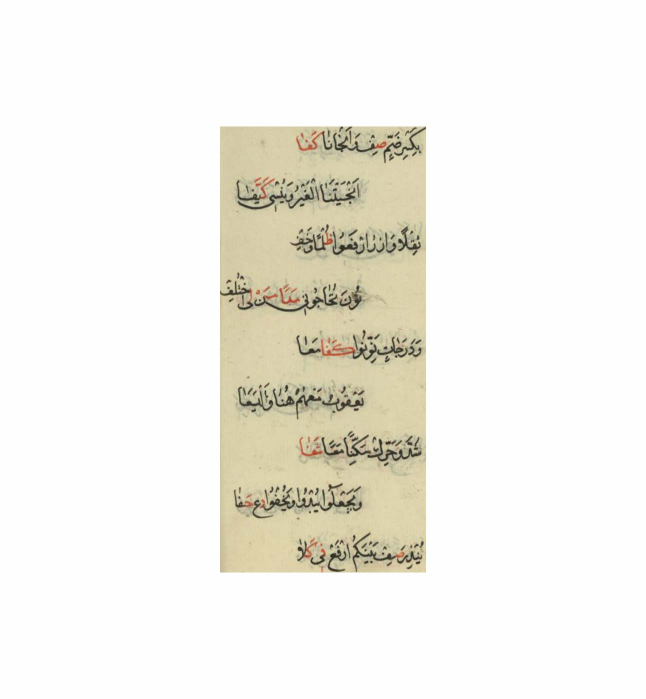 بِكَسْرِ ضَمٍّ صِف وَأَنْجَانَا كَفَا
أَنْجَيْتَنَا الْغَيْرُ وَيُنْسِي كَيَّفَا
ثِقْلًا وَآزَرُ ارْفَعُوا ظُلْمًا وَخِفْ
نُونَ تُحَاجُّونِي مَدًا مِنْ لِي اخْتُلِفْ
وَدَرَجَاتٍ نَوِّنُوا كَفَا مَعَا
يَعْقُوبُ مَعْهُمْ هُنَا وَالْيَسَعَا
شَدِّدْ وَحَرِّكْ سَكِّنًا مَعًا شَفَا
وَيَجْعَلُوا يُبْدُو وَيُخْفُو دَعْ حَفَا
يُنْذِرَ صِفْ بَيْنَكُمُ ارْفَعْ فِي كَلَا